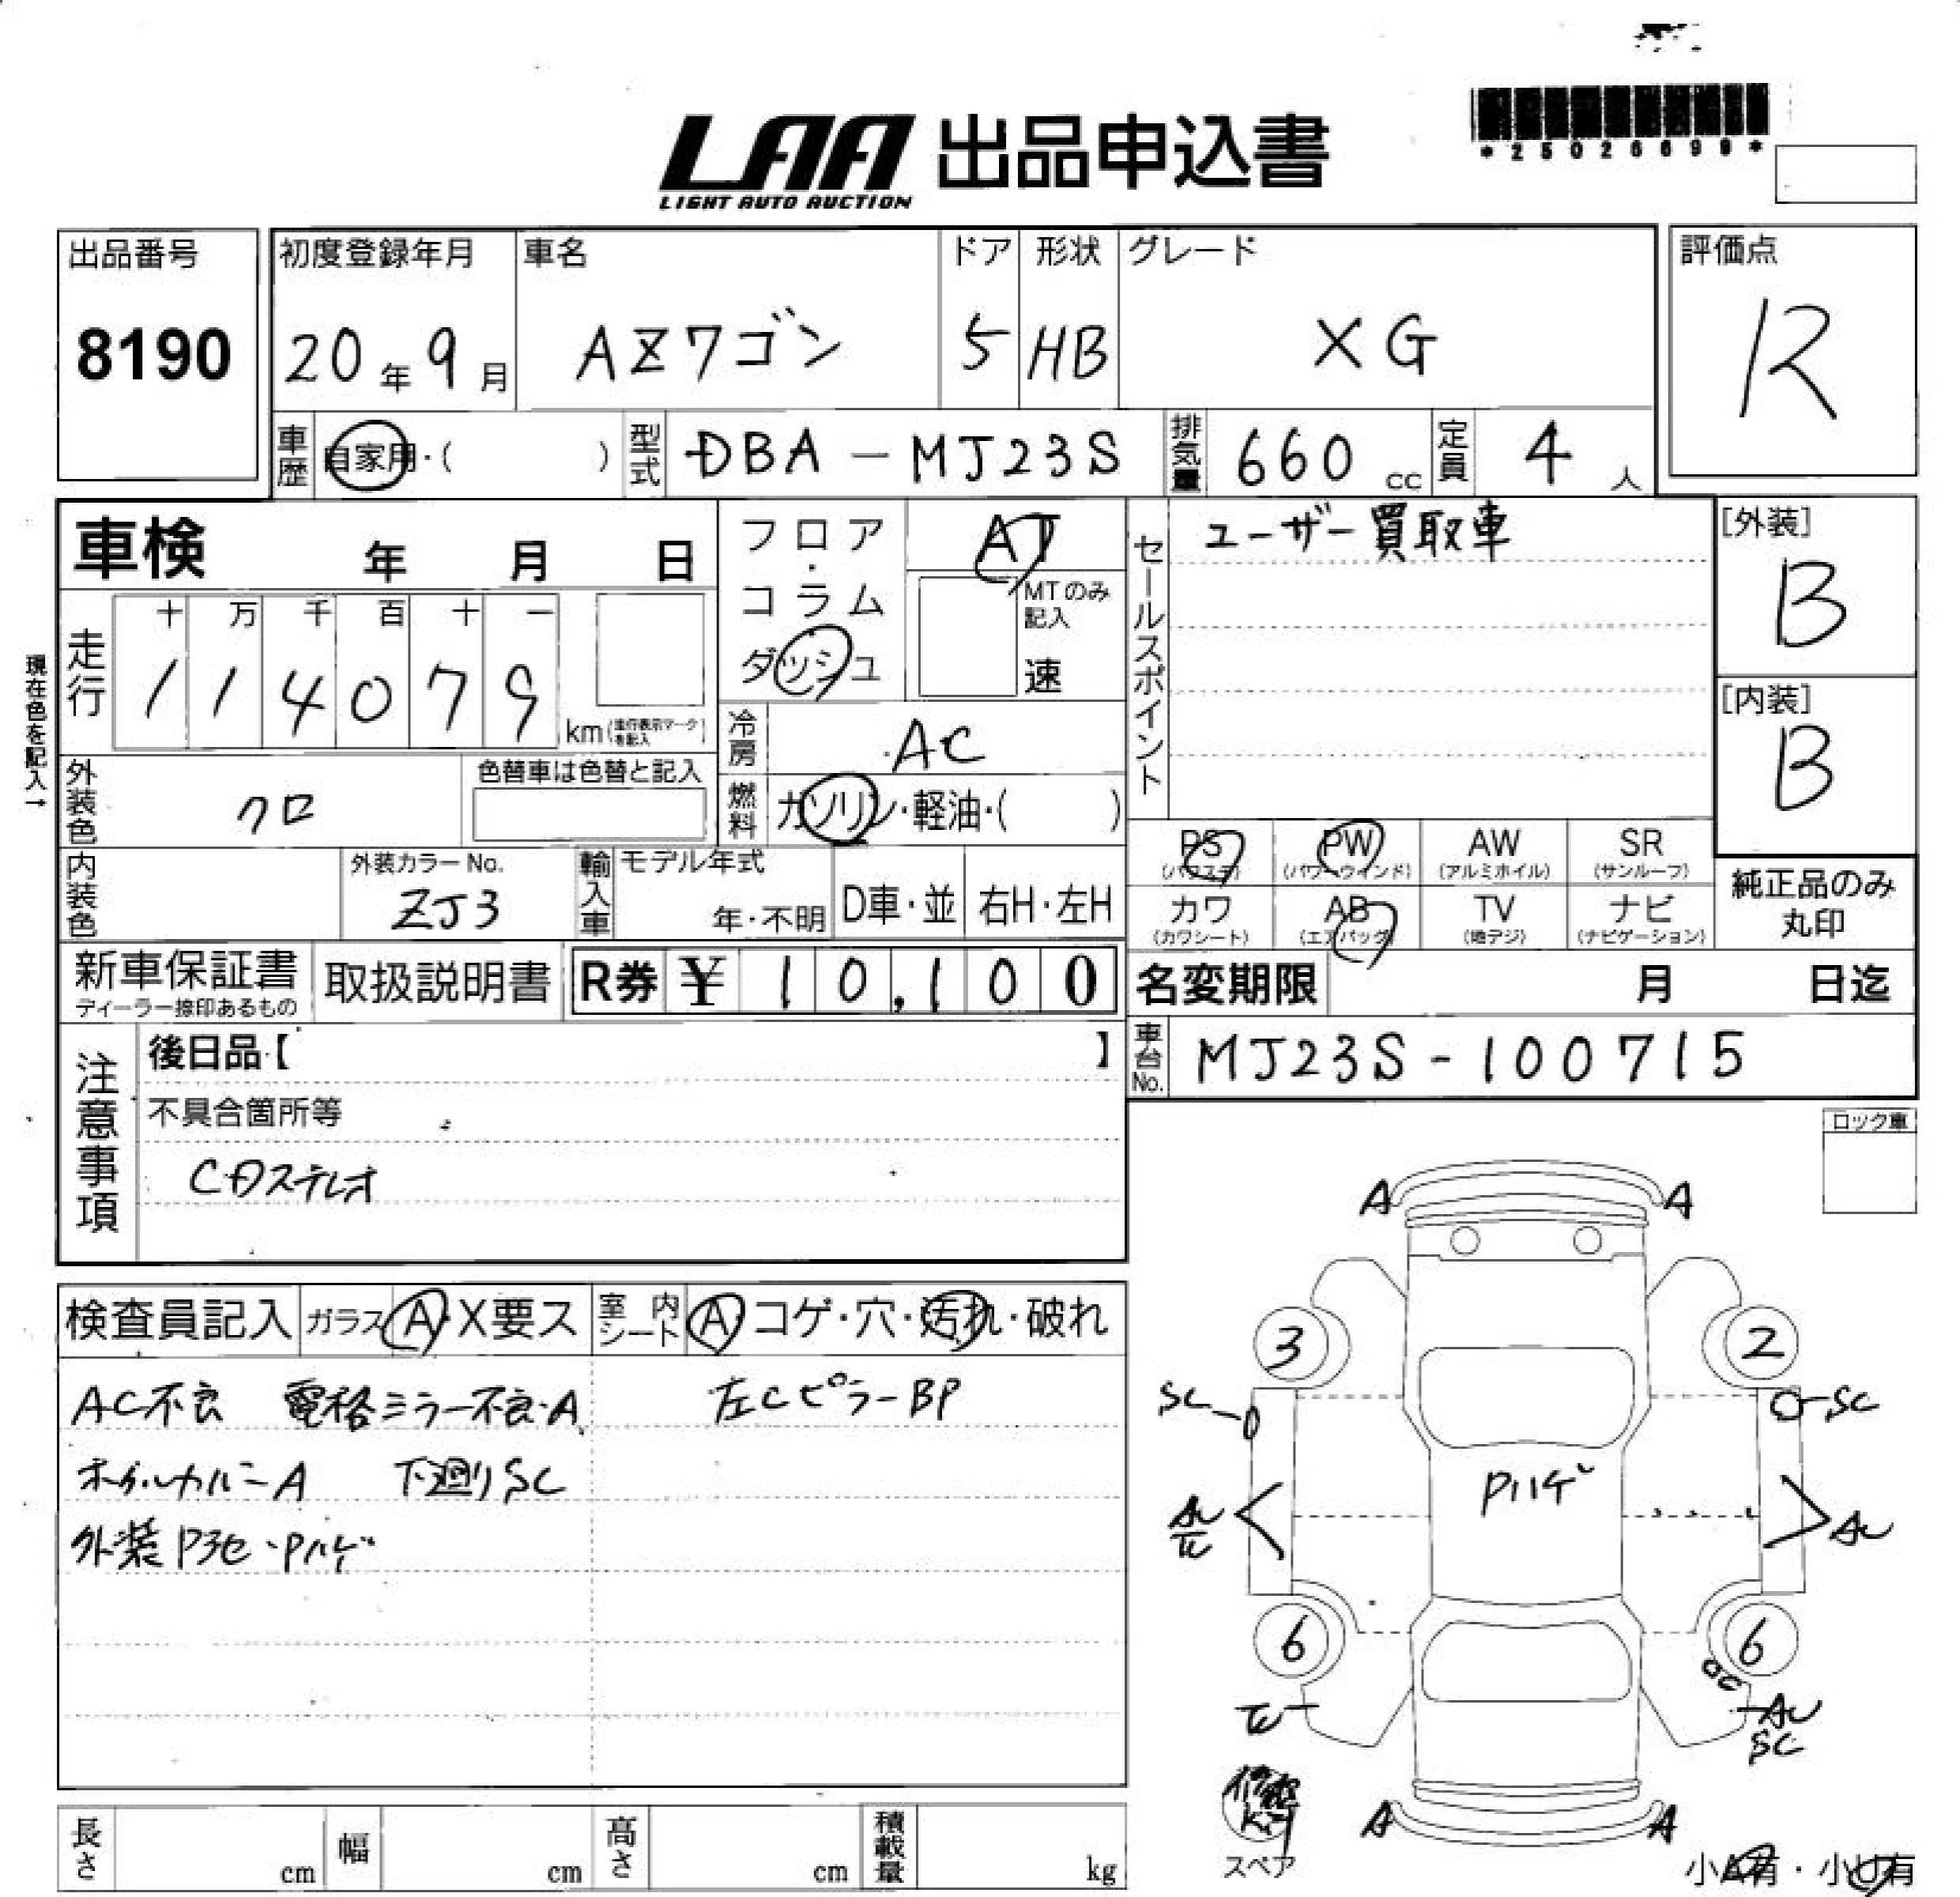 LAA 出品申込書
LIGHT AUTO AUCTION
*25026699*
出品番号 初度登録年月 車名 ドア 形状 グレード 評価点
8190 20年9月 AZワゴン 5 HB XG R
車歴 自家用・( ) 型式 DBA-MJ23S 排気量 660cc 定員 4人
車検 年 月 日
フロア・コラム
ダッシュ
AT
MTのみ記入
速
セールスポイント
ユーザー買取車
[外装]
B
[内装]
B
現在色を記入→
走行 十 万 千 百 十 一
1 1 4 0 7 9 km(走行表示マークを記入)
冷房 AC
燃料 ガソリン・軽油・( )
外装色 クロ 色替車は色替と記入
内装色 外装カラーNo. ZJ3
輸入車 モデル年式 年・不明 D車・並 右H・左H
PS (パワステ) PW (パワーウインド) AW (アルミホイル) SR (サンルーフ)
カワ (カワシート) AB (エアバック) TV (地デジ) ナビ (ナビゲーション)
純正品のみ
丸印
新車保証書 ディーラー捺印あるもの 取扱説明書 R券 ¥10,100
名変期限 月 日迄
車台No. MJ23S-100715
注意事項
後日品【 】
不具合箇所等
CDステレオ
ロック車
検査員記入 ガラス A・X要ス 室内シート A・コゲ・穴・汚れ・破れ
AC不良 電格ミラー不良・A 左Cピラー BP
A 下廻りSC
外装 Pハゲ
A A
3 2
SC SC
Pハゲ
AU AU
6 6
AU
SC
A A
スペア
小A有・小U有
長さ cm 幅 cm 高さ cm 積載量 kg